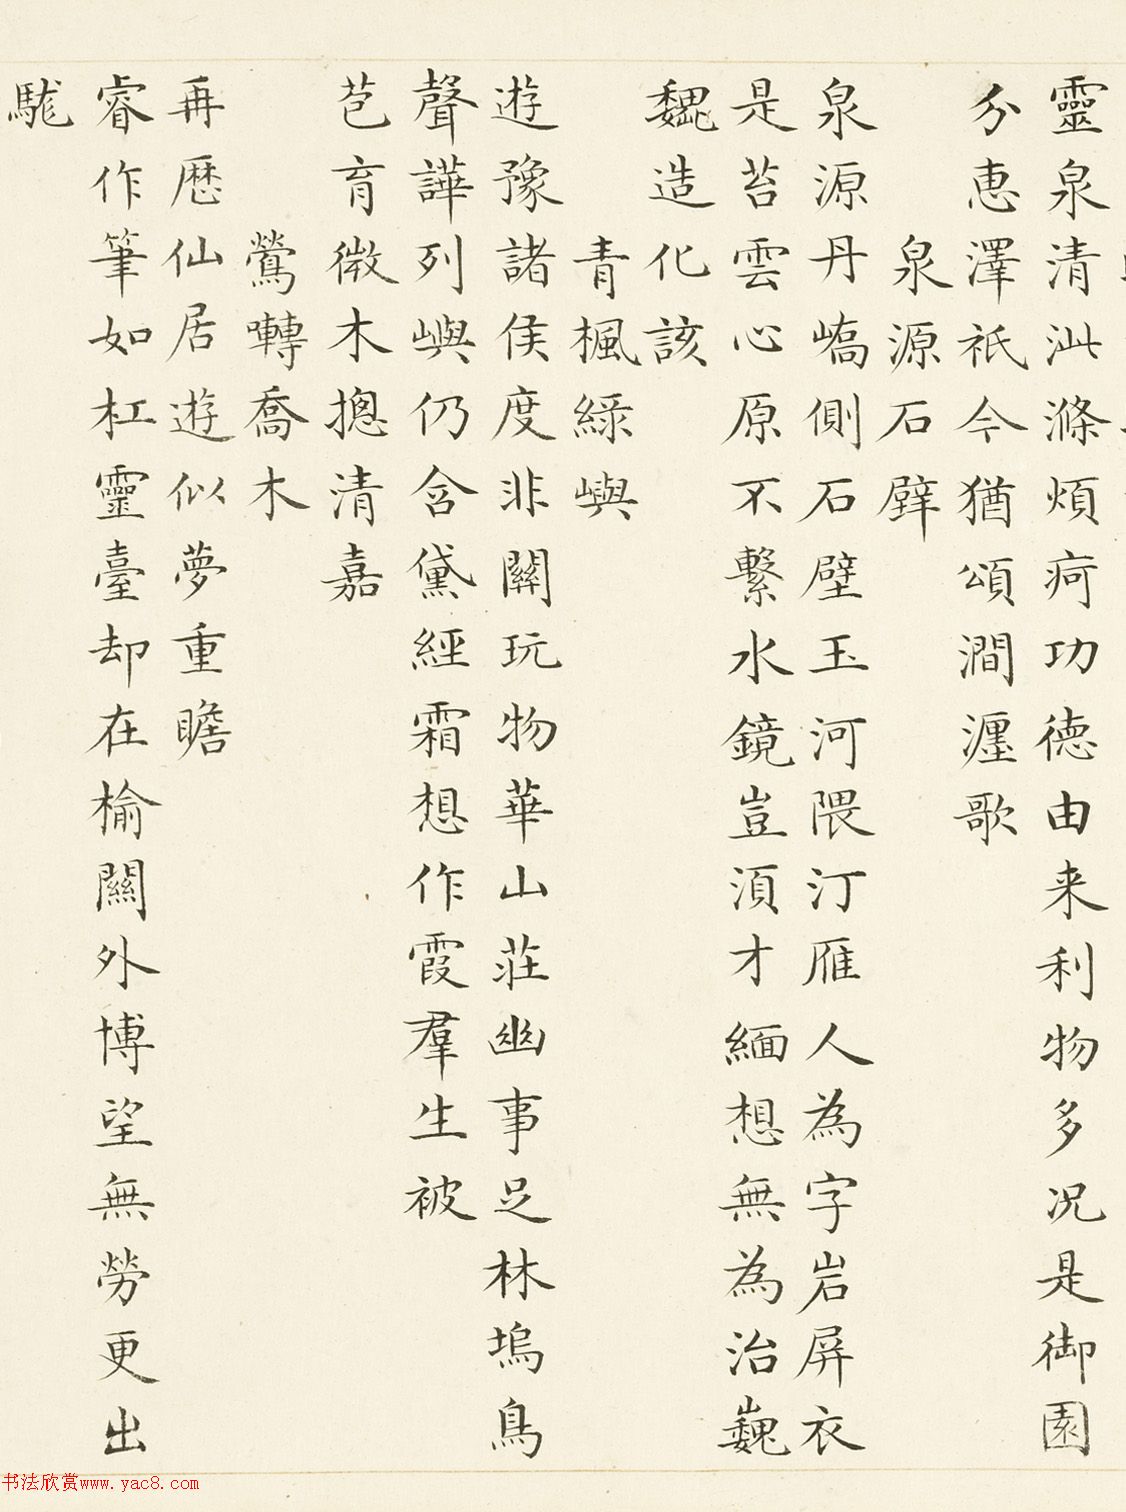 靈泉清泚滌煩疴功德由来利物多况是御園
分惠澤祇今猶頌澗瀍歌
泉源石壁
泉源丹嶠側石壁玉河隈汀雁人為字岩屏衣
是苔雲心原不繫水鏡豈須才緬想無為治巍
巍造化該
青楓綠嶼
遊豫諸侯度非關玩物華山莊幽事足林塢鳥
聲譁列嶼仍含黛經霜想作霞羣生被
苞育微木摠清嘉
鶯囀喬木
再歷仙居遊似夢重瞻
睿作筆如杠靈臺却在榆關外博望無勞更出
駹
书法欣赏www.yac8.com